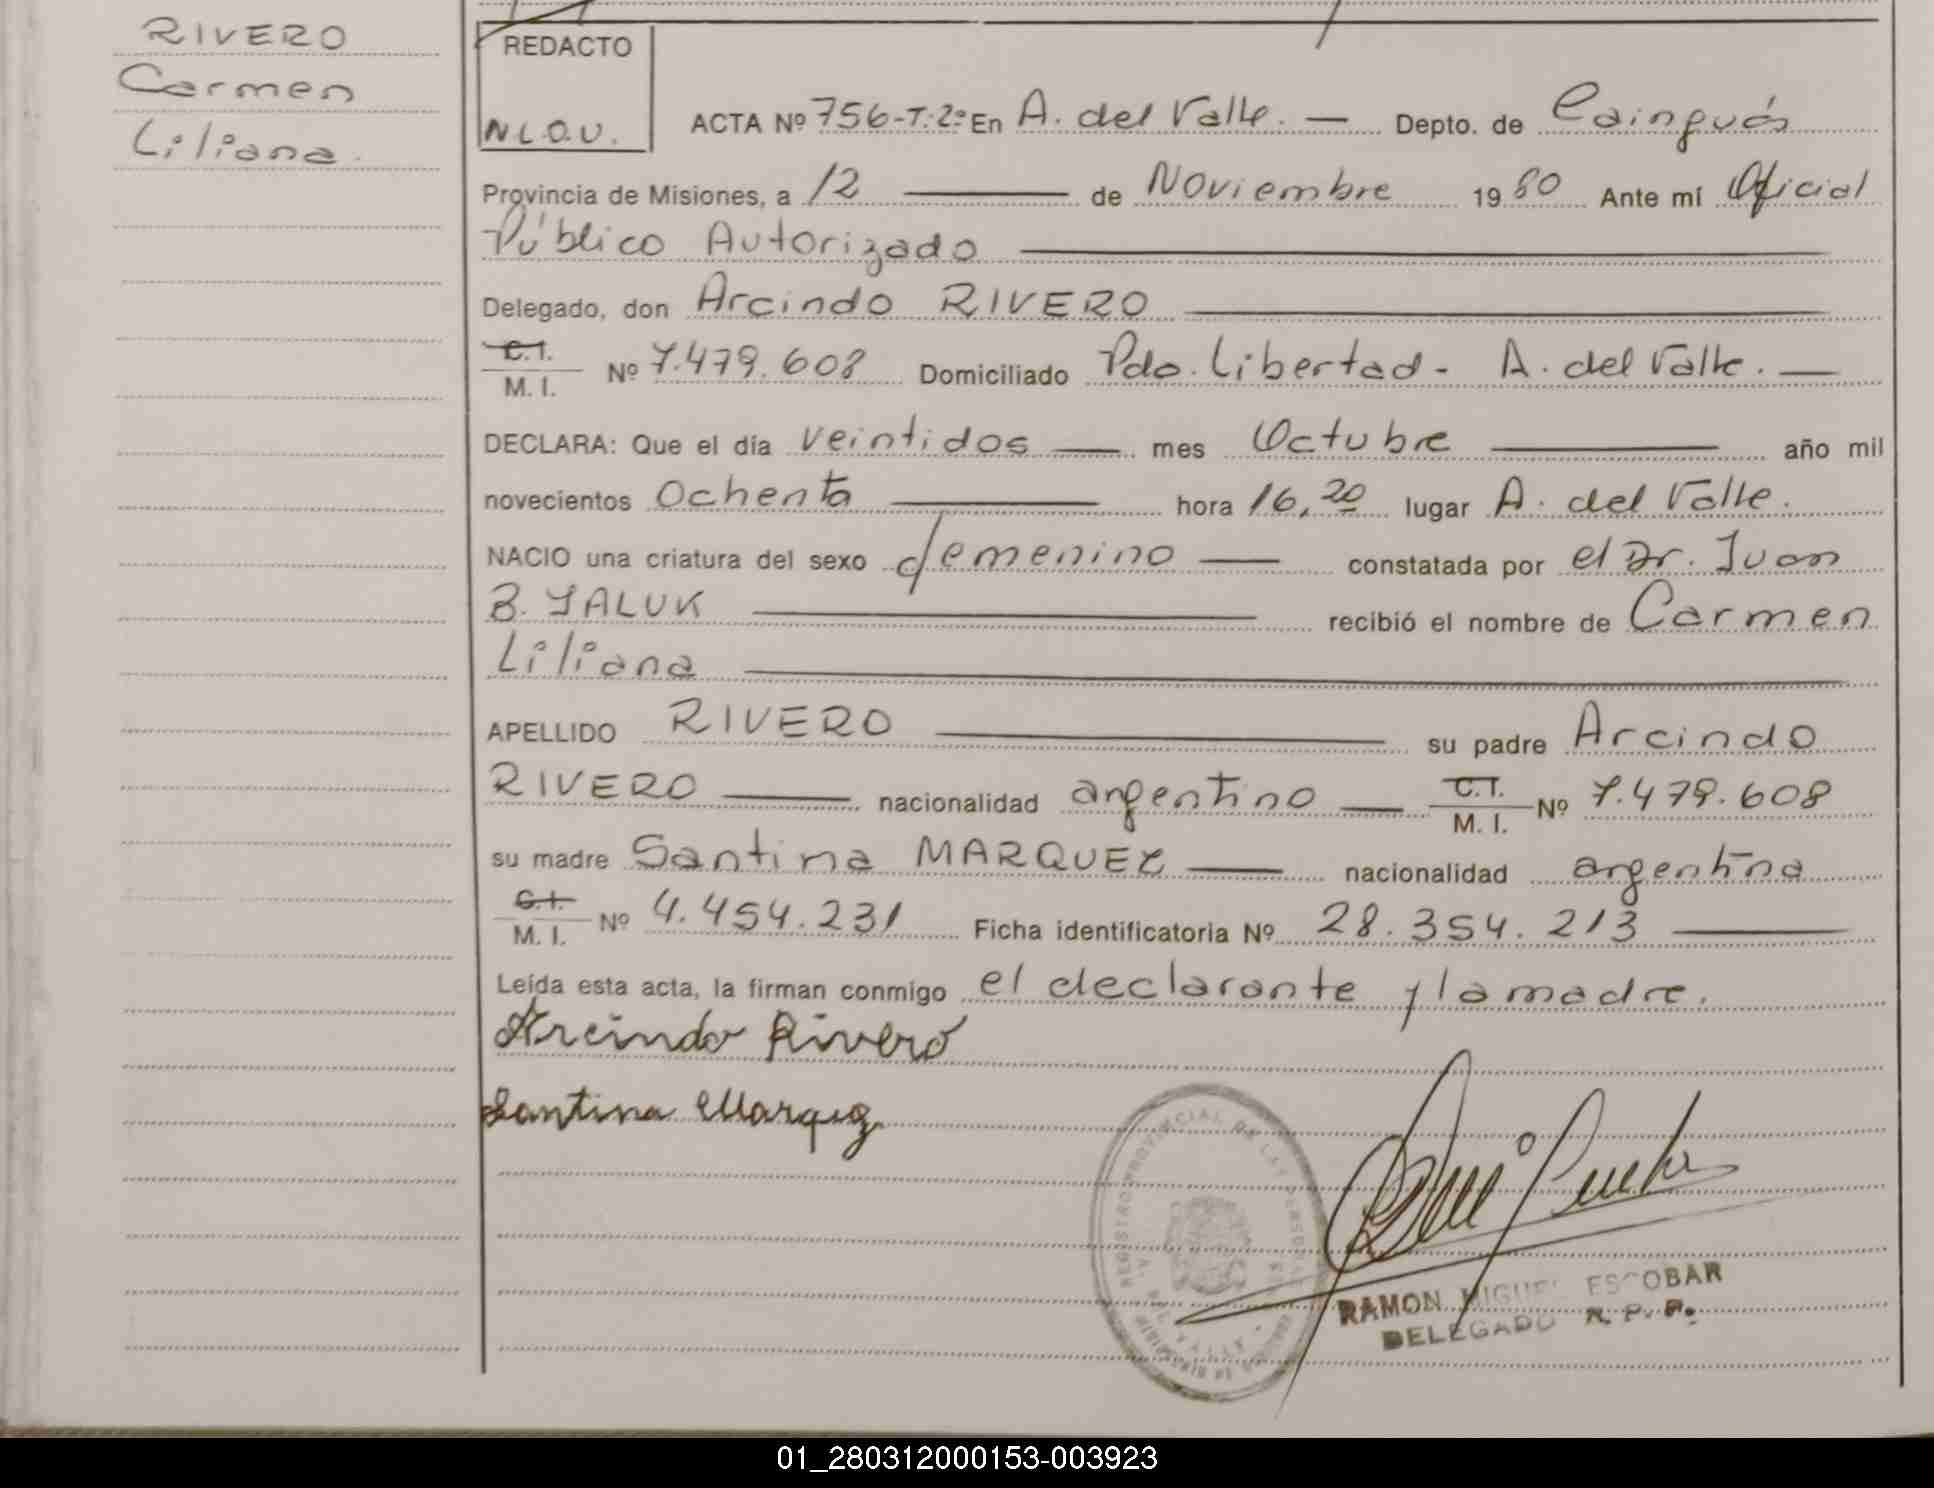 RIVERO
Carmen
Liliana.
REDACTO
N.L.O.V.
ACTA Nº 756-T.2º En A. del Valle. — Depto. de Cainguás
Provincia de Misiones, a 12 — de Noviembre 1980 Ante mí Oficial
Público Autorizado
Delegado, don Arcindo RIVERO
C.I. M. I. Nº 7.479.608 Domiciliado Pdo. Libertad - A. del Valle. —
DECLARA: Que el día veintidos — mes Octubre — año mil
novecientos Ochenta — hora 16,20 lugar A. del Valle.
NACIO una criatura del sexo femenino — constatada por el Dr. Juan
B. YALUK — recibió el nombre de Carmen
Liliana —
APELLIDO RIVERO — su padre Arcindo
RIVERO — nacionalidad argentino — C.I. M. I. Nº 7.479.608
su madre Santina MARQUEZ — nacionalidad argentina
C.I. M. I. Nº 4.454.231 Ficha identificatoria Nº 28.354.213 —
Leída esta acta, la firman conmigo el declarante y la madre.
Arcindo Rivero
Santina Marqez
REGISTRO PROVINCIAL DE LAS PERSONAS
A. DEL VALLE
RAMON MIGUEL ESCOBAR
DELEGADO R. P. P.
01_280312000153-003923